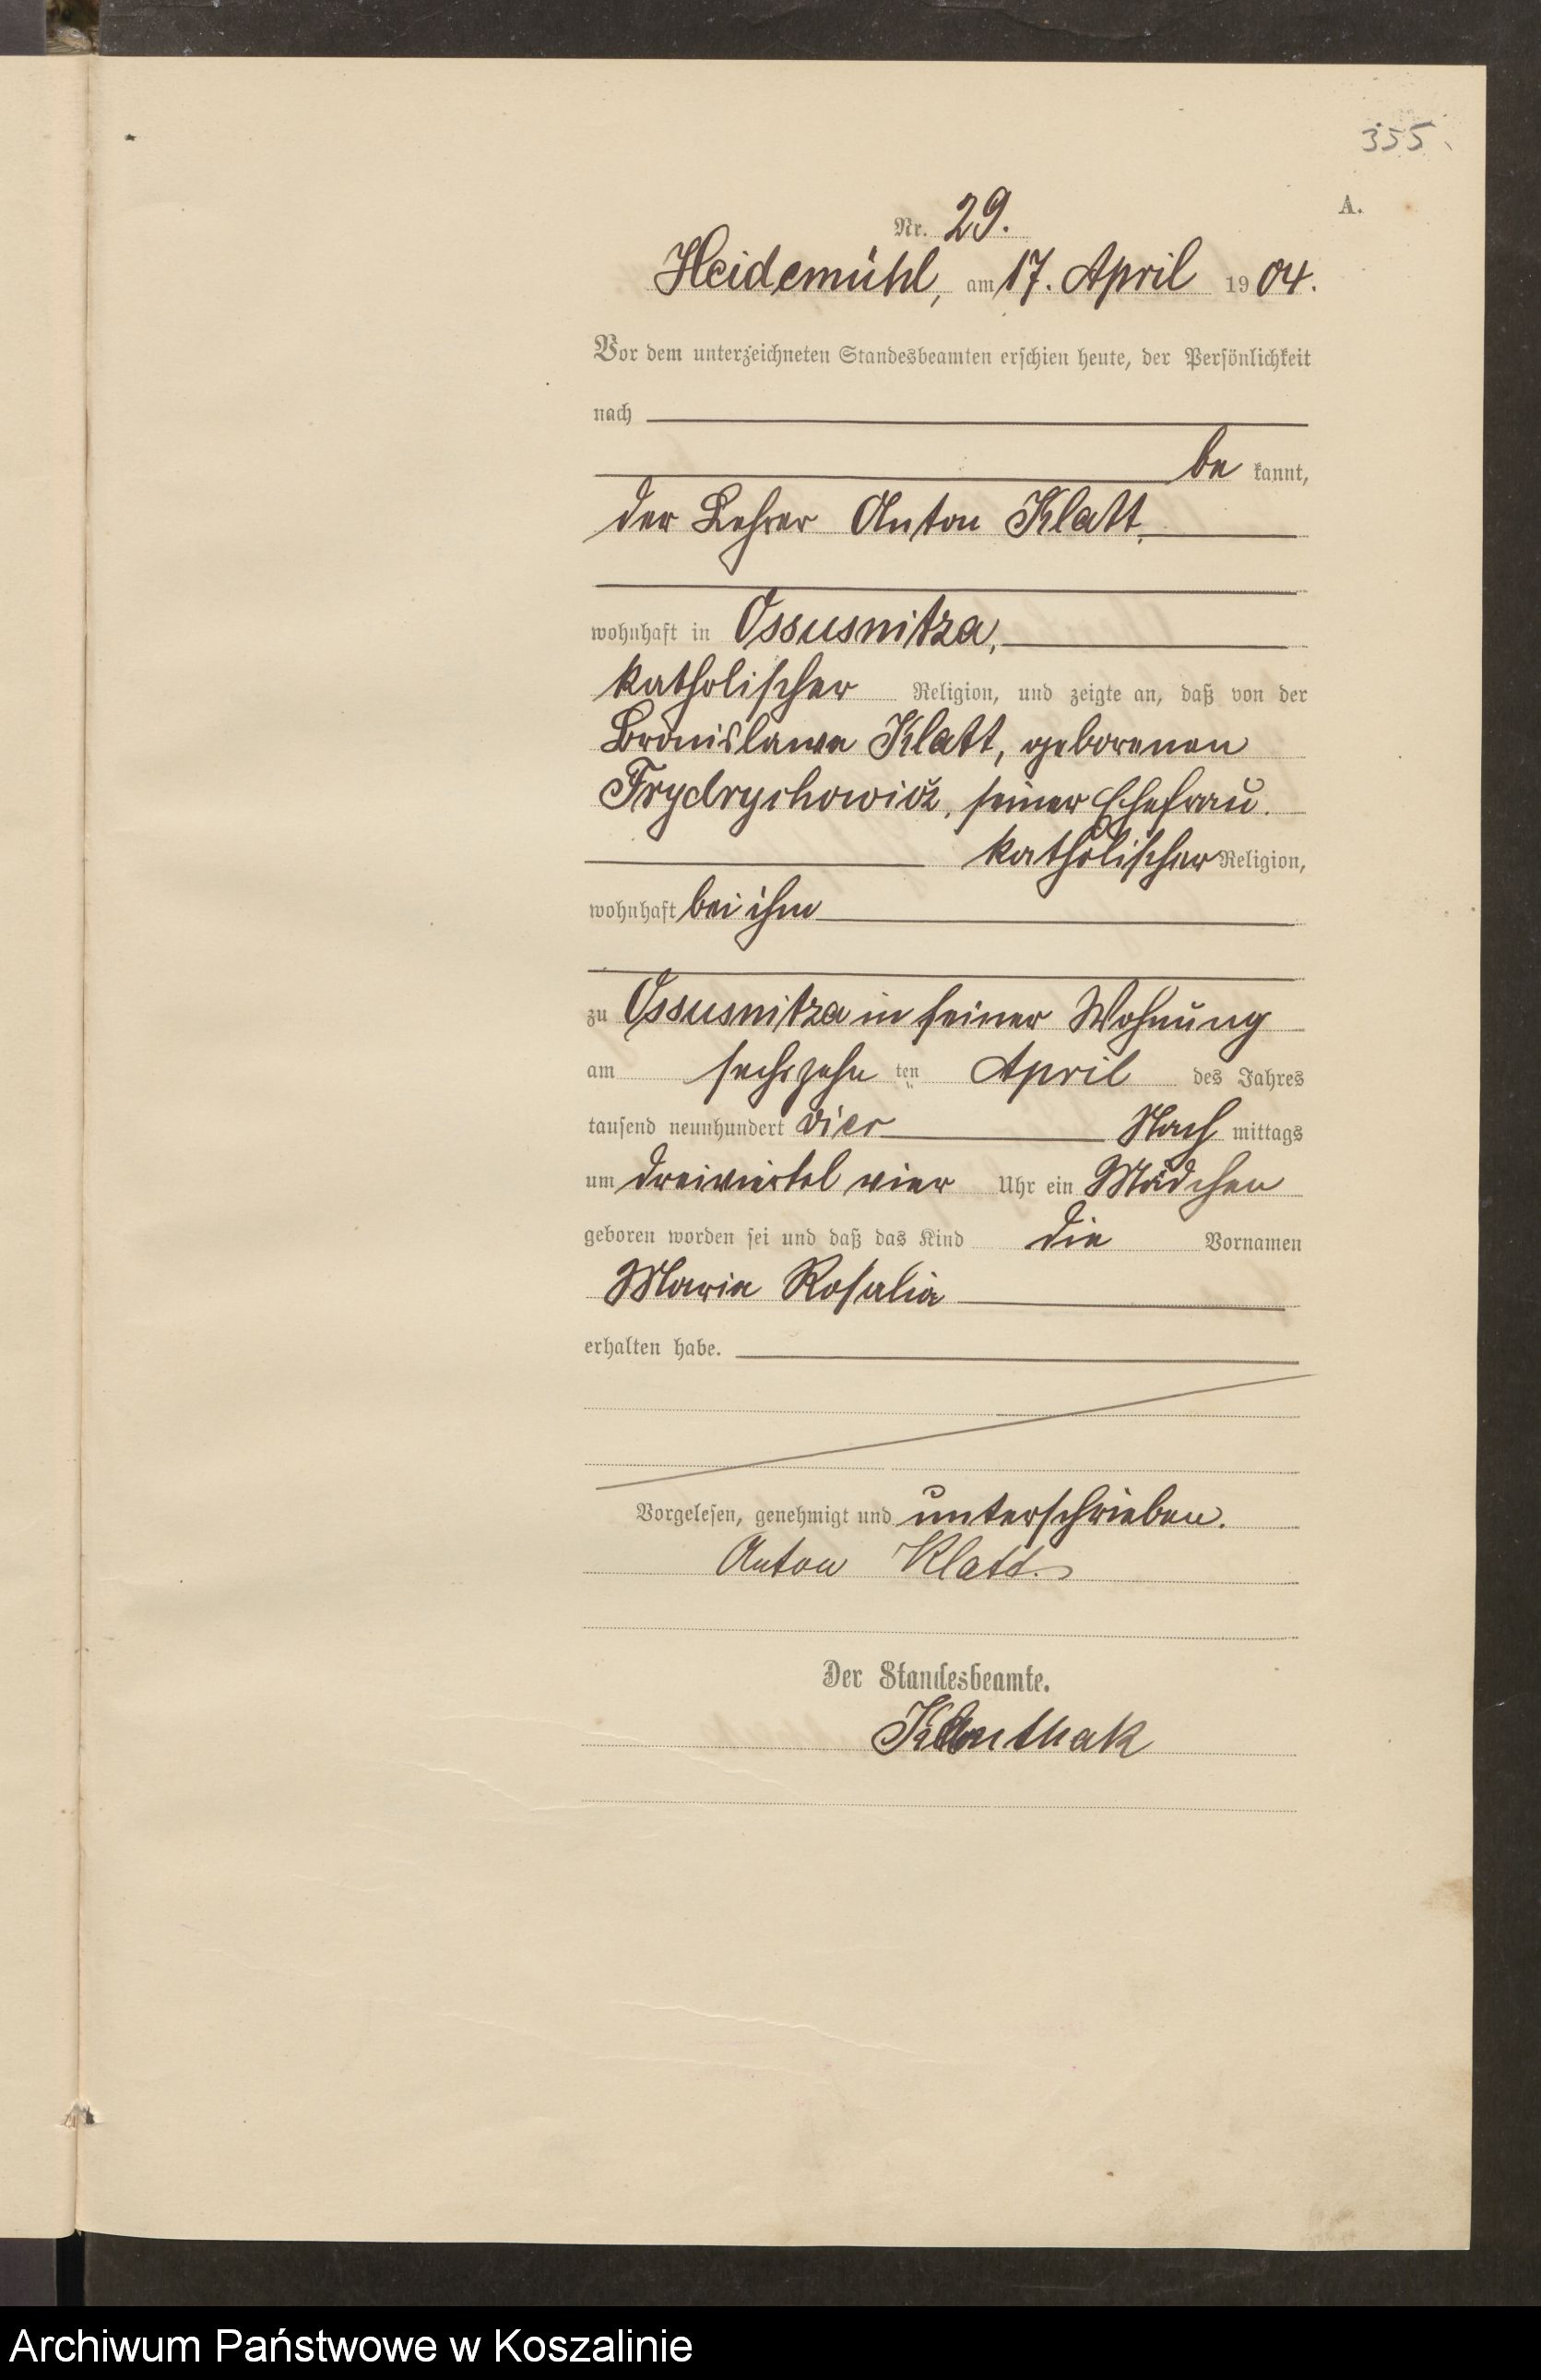 355.
A.
Nr. 29.
Heidemühl, am 17. April 1904.
Vor dem unterzeichneten Standesbeamten erschien heute, der Persönlichkeit
nach
be kannt,
der Lehrer Anton Klatt,
wohnhaft in Ossusnitza,
katholischer Religion, und zeigte an, daß von der
Bronislawa Klatt, geborenen
Frydrychowicz, seiner Ehefrau.
katholischer Religion,
wohnhaft bei ihm
zu Ossusnitza in seiner Wohnung
am sechszehn ten April des Jahres
tausend neunhundert vier Nach mittags
um dreiviertel vier Uhr ein Mädchen
geboren worden sei und daß das Kind die Vornamen
Maria Rosalia
erhalten habe.
Vorgelesen, genehmigt und unterschrieben.
Anton Klatt.
Der Standesbeamte.
Archiwum Państwowe w Koszalinie